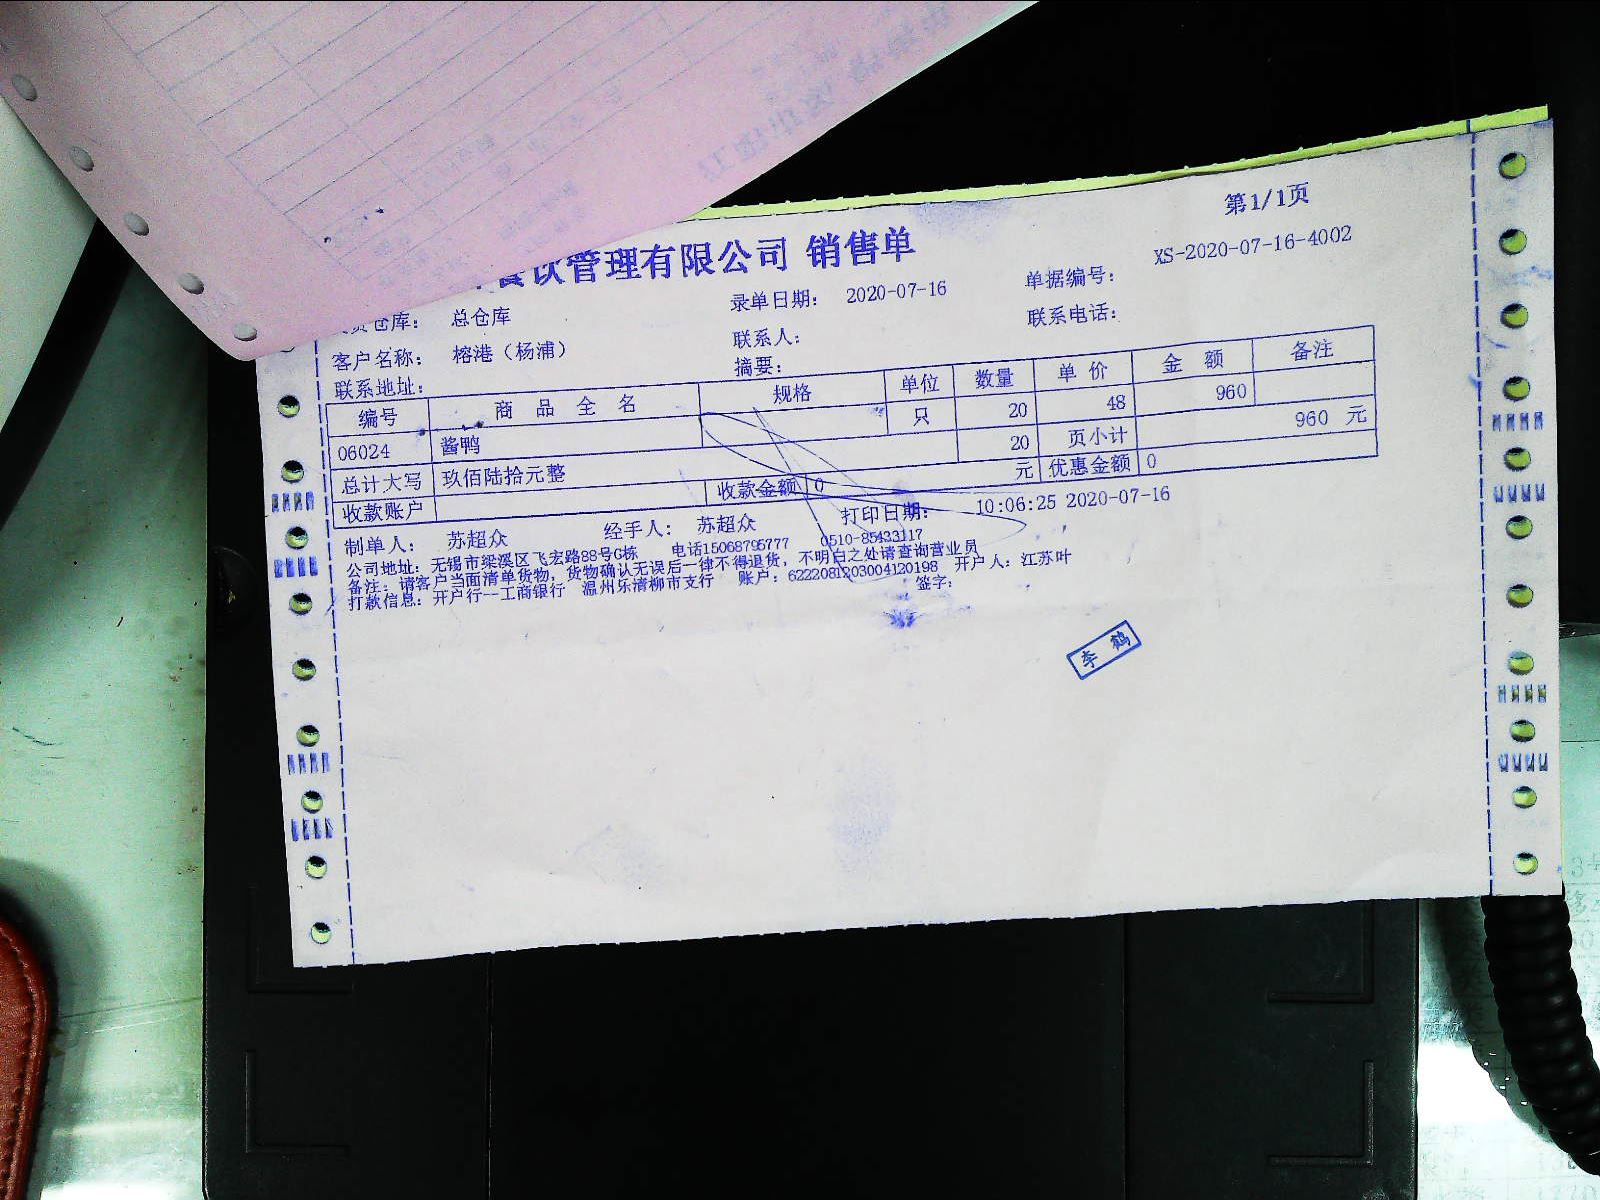 第1/1页
餐饮管理有限公司 销售单
仓库： 总仓库 录单日期： 2020-07-16 单据编号： XS-2020-07-16-4002
客户名称： 榕港（杨浦） 联系人： 联系电话：
联系地址： 摘要：
编号 商 品 全 名 规格 单位 数量 单 价 金 额 备注
06024 酱鸭 只 20 48 960
20 页小计 960 元
总计大写 玖佰陆拾元整 元 优惠金额 0
收款账户 收款金额 0
制单人： 苏超众 经手人： 苏超众 打印日期： 10:06:25 2020-07-16
公司地址：无锡市梁溪区飞宏路88号G栋 电话15068795777 0510-85433117
备注：请客户当面清单货物，货物确认无误后一律不得退货，不明白之处请查询营业员
打款信息：开户行--工商银行 温州乐清柳市支行 账户：6222081203004120198 开户人：江苏叶
签字：
李 鹤